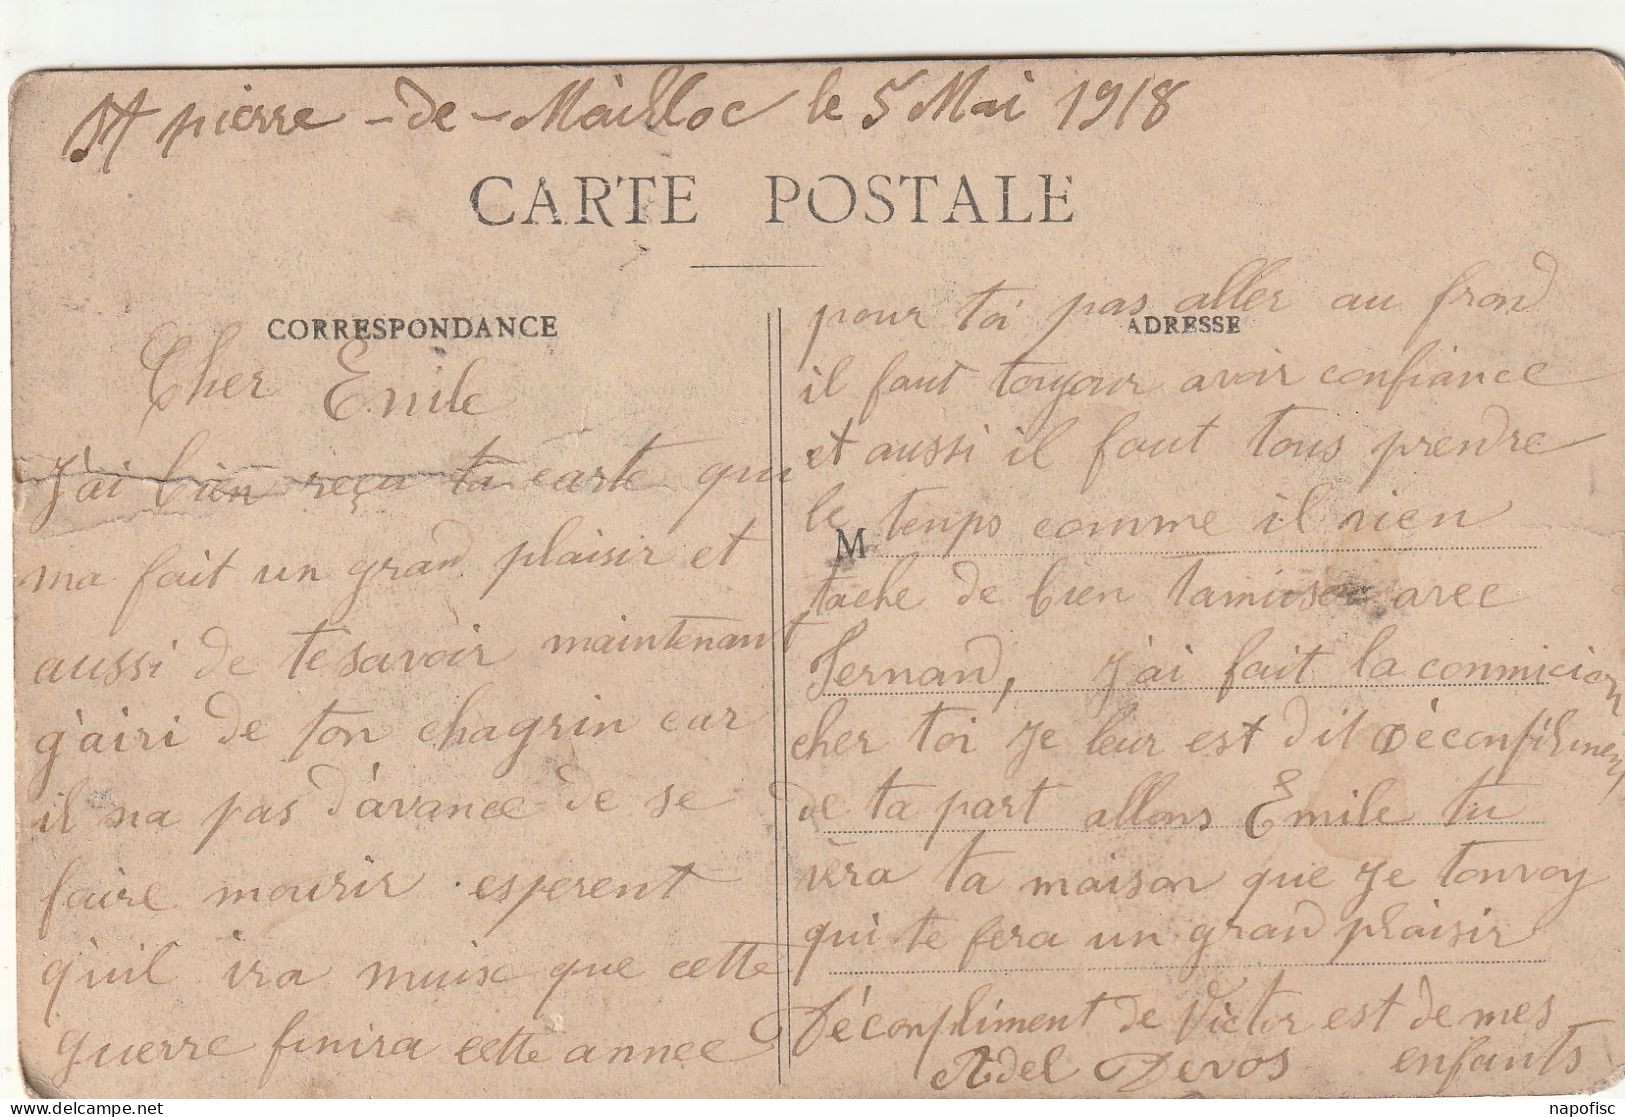 St pierre - de - Mailloc le 5 Mai 1918
CARTE POSTALE
CORRESPONDANCE
Cher Emile
J'ai bien reçu ta carte qui
ma fait un grand plaisir et
aussi de te savoir maintenant
g'airi de ton chagrin car
il na pas d'avance de se
faire mourir esperent
qu'il ira muix que cette
guerre finira cette annee
ADRESSE
pour toi pas aller au frond
il faut toujour avoir confiance
et aussi il faut tous prendre
le temps comme il vien
M
tache de bien tamuser avec
Fernand, J'ai fait la conmicion
cher toi je leur est dit
de ta part allons Emile tu
vèra ta maison que je tonvoy
qui te fera un grand plaisir
Décompliment de Victor est de mes
enfants
Adel Devos
napofisc